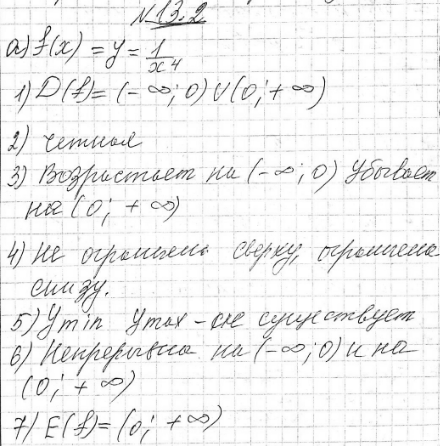 N 13.2
а) f(x) = y = 1/x⁴
1) D(f)= (-∞; 0) U (0; +∞)
2) четная
3) Возрастает на (-∞; 0) Убывает
на (0; +∞)
4) Не ограничена сверху, ограничена
снизу.
5) Ymin Ymax - не существует
6) Непрерывна на (-∞; 0) и на
(0; +∞)
7) E(f)= (0; +∞)